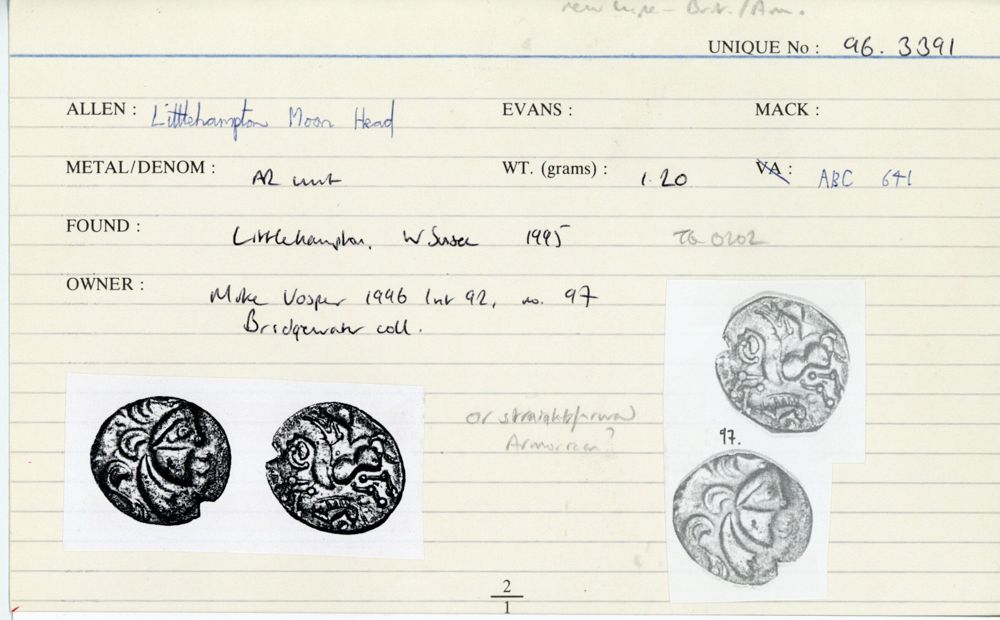 new type - Brit. / Arm.
UNIQUE No : 96. 3391
ALLEN : Littlehampton Moon Head EVANS : MACK :
METAL/DENOM : AR unit WT. (grams) : 1.20 VA : ABC 641
FOUND : Littlehampton, W Sussex 1995 TQ 0202
OWNER : Mike Vosper 1996 list 92, no. 97
Bridgewater coll.
or straightforward
Armorican?
97.
2
1